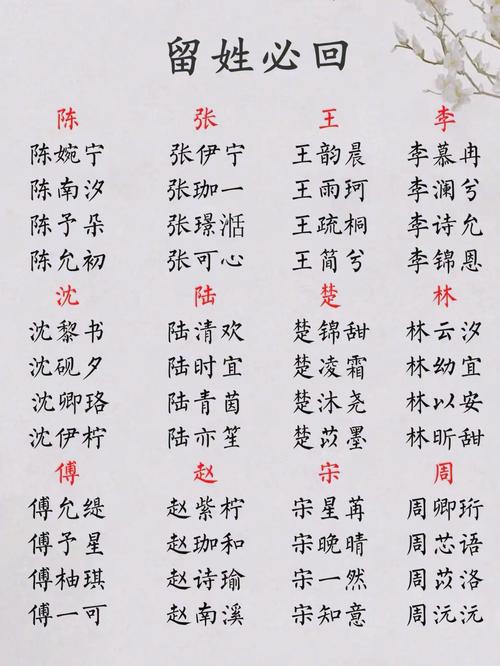 留姓必回
陈 张 王 李
陈婉宁 张伊宁 王韵晨 李慕冉
陈南汐 张珈一 王雨珂 李澜兮
陈予朵 张璟湉 王疏桐 李诗允
陈允初 张可心 王简兮 李锦恩
沈 陆 楚 林
沈黎书 陆清欢 楚锦甜 林云汐
沈砚夕 陆时宜 楚凌霜 林幼宜
沈卿珞 陆青茵 楚沐尧 林以安
沈伊柠 陆亦笙 楚苡墨 林昕甜
傅 赵 宋 周
傅允缇 赵紫柠 宋星苒 周卿珩
傅予星 赵珈和 宋晚晴 周芯语
傅柚琪 赵诗瑜 宋一然 周苡洛
傅一可 赵南溪 宋知意 周沅沅